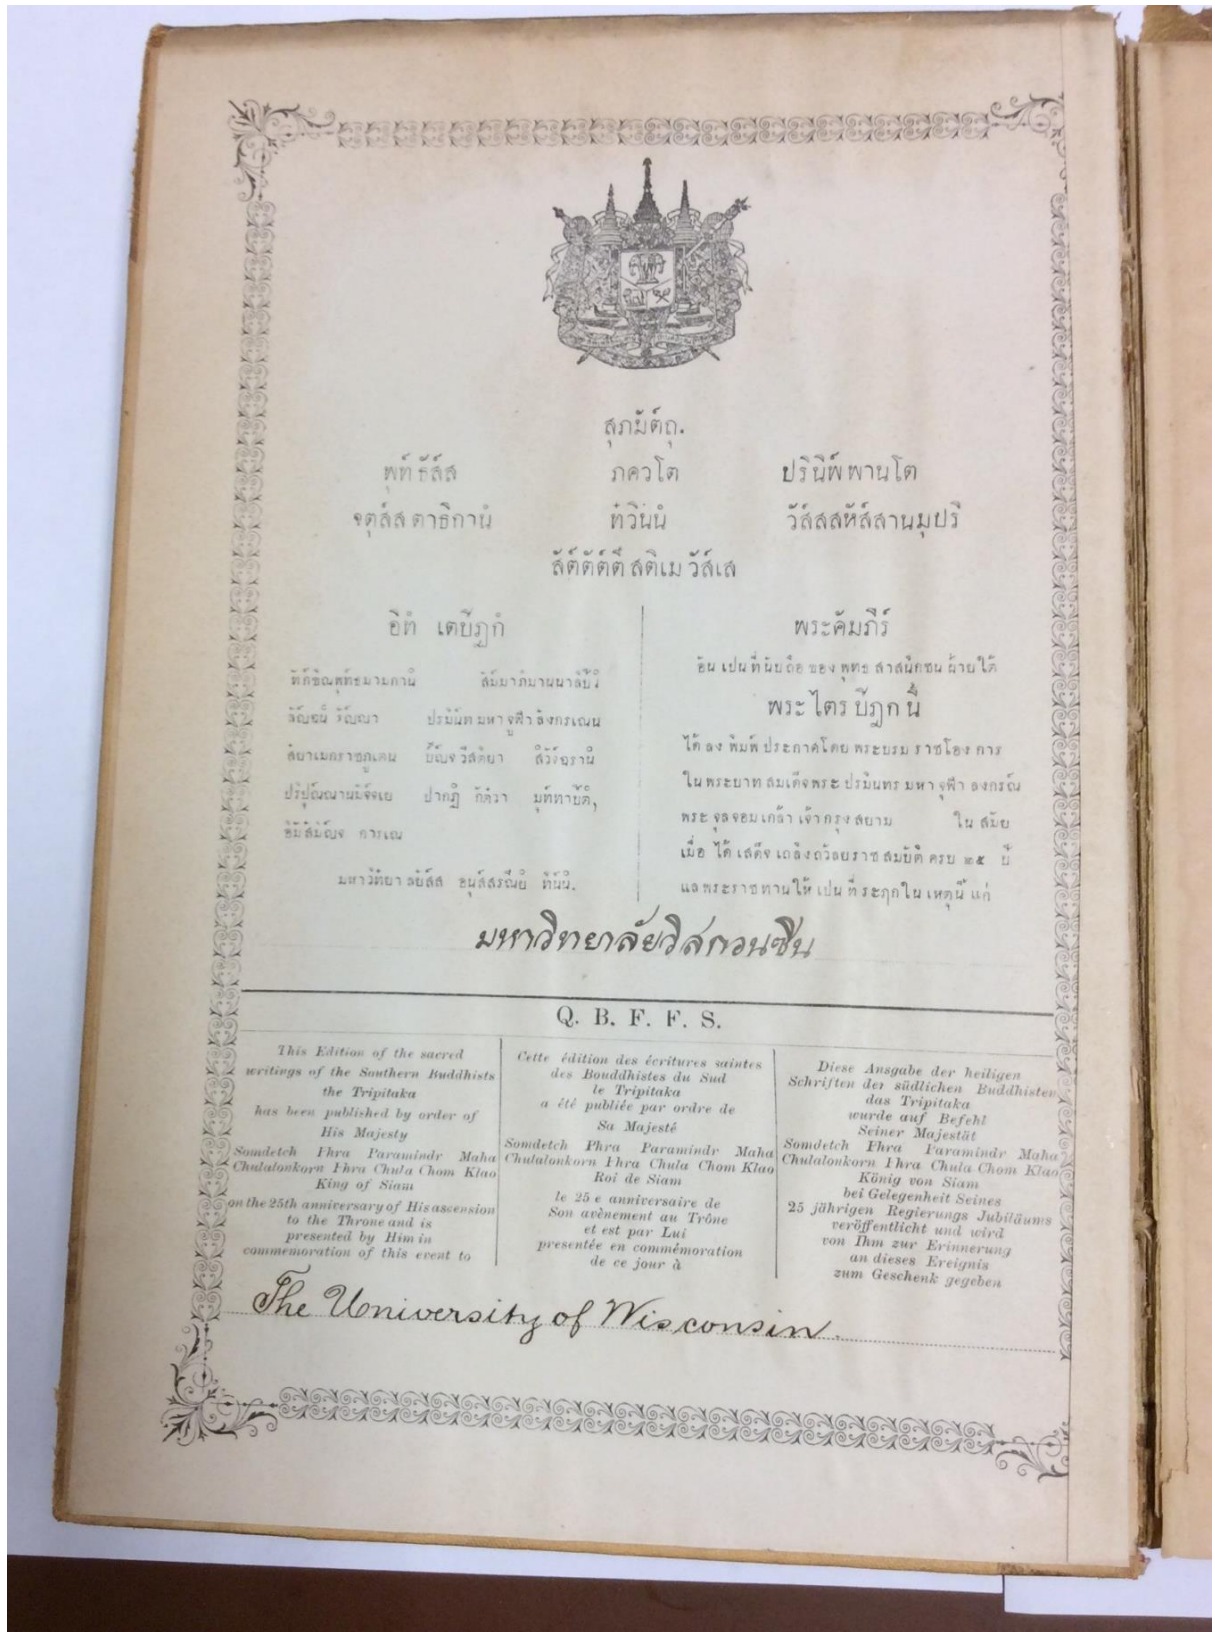 สุภมัต์ถุ.
พุท์ธัส์ส ภควโต ปรินิพ์พานโต
จตุส์สตาธิกานํ ท๎วินฺนํ วัส์สสหัส์สานมุปริ
สัต์ตัต์ตึสติเม วัส์เส
อิทํ เตปิฎกํ
มหาวิท์ยาลยัส์ส อนุส์สรณียํ ทินํนํ.
พระคัมภีร์
อัน เปน ที่ นับ ถือ ของ พุทธ สาสนิกชน ฝ่าย ใต้
พระ ไตร ปิฎก นี้
ได้ ลง พิมพ์ ประกาศโดย พระบรม ราชโอง การ
ใน พระบาท สมเด็จพระ ปรมินทร มหา จุฬา ลงกรณ์
พระ จุลจอม เกล้า เจ้า กรุง สยาม ใน สมัย
เมื่อ ได้ เสด็จ เถลิงถวัลยราช สมบัติ ครบ ๒๕ ปี
แล พระราชทาน ให้ เปน ที่ ระฦก ใน เหตุนี้ แก่
มหาวิทยาลัยวิสกอนซิน
Q. B. F. F. S.
This Edition of the sacred
writings of the Southern Buddhists
the Tripitaka
has been published by order of
His Majesty
Somdetch Phra Paramindr Maha
Chulalonkorn Phra Chula Chom Klao
King of Siam
on the 25th anniversary of His ascension
to the Throne and is
presented by Him in
commemoration of this event to
Cette édition des écritures saintes
des Bouddhistes du Sud
le Tripitaka
a été publiée par ordre de
Sa Majesté
Somdetch Phra Paramindr Maha
Chulalonkorn Phra Chula Chom Klao
Roi de Siam
le 25 e anniversaire de
Son avènement au Trône
et est par Lui
presentée en commémoration
de ce jour à
Diese Ansgabe der heiligen
Schriften der südlichen Buddhisten
das Tripitaka
wurde auf Befehl
Seiner Majestät
Somdetch Phra Paramindr Maha
Chulalonkorn Phra Chula Chom Klao
König von Siam
bei Gelegenheit Seines
25 jährigen Regierungs Jubiläums
veröffentlicht und wird
von Ihm zur Erinnerung
an dieses Ereignis
zum Geschenk gegeben
The University of Wisconsin.